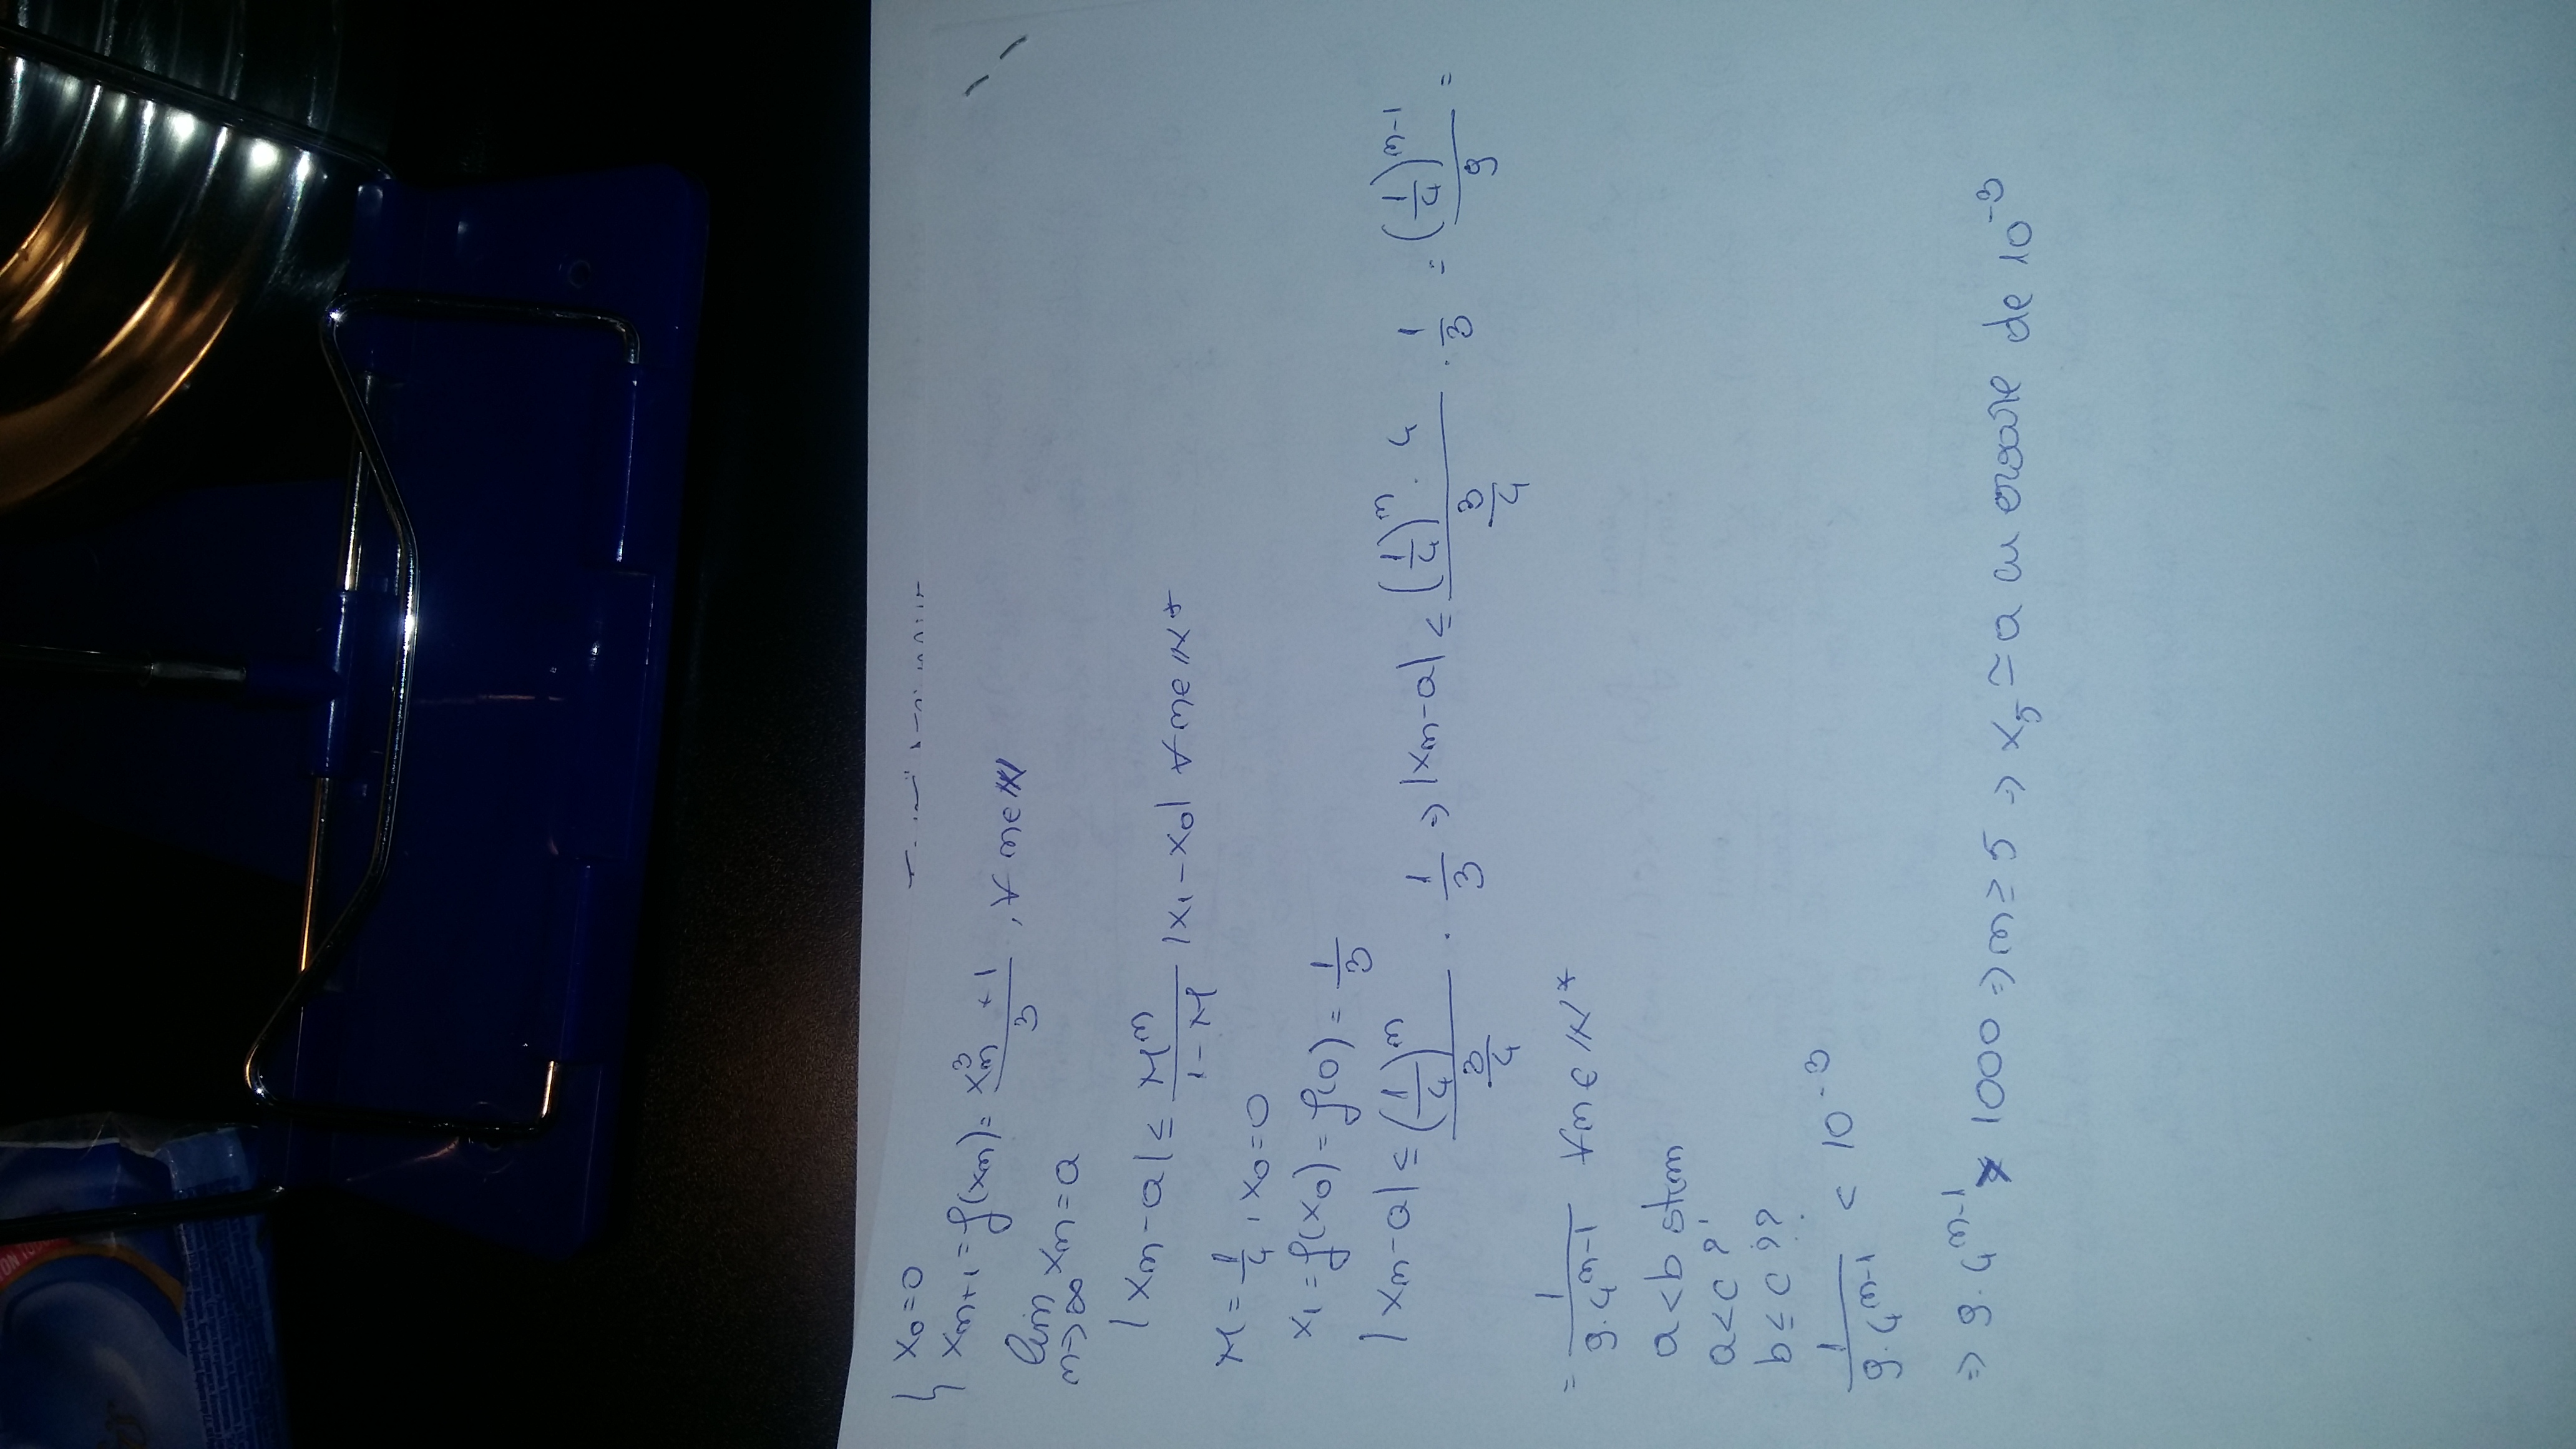 x₀=0
xₙ₊₁=f(xₙ)=(xₙ³+1)/3, ∀ n∈ℕ
lim n→∞ xₙ=a
|xₙ-a|≤ Mⁿ/(1-M) |x₁-x₀| ∀ n∈ℕ*
M=1/4, x₀=0
x₁=f(x₀)=f(0)=1/3
|xₙ-a|≤ (1/4)ⁿ/(3/4) · 1/3 ⇒ |xₙ-a|≤ ((1/4)ⁿ · 4)/(3/4) · 1/3 = (1/4)ⁿ⁻¹/9 =
= 1/(9·4ⁿ⁻¹) ∀n∈ℕ*
a<b stim
a<c ?
b≤c ??
1/(9·4ⁿ⁻¹) < 10⁻³
⇒ 9·4ⁿ⁻¹ > 1000 ⇒ n≥5 ⇒ x₅≃a cu eroare de 10⁻³